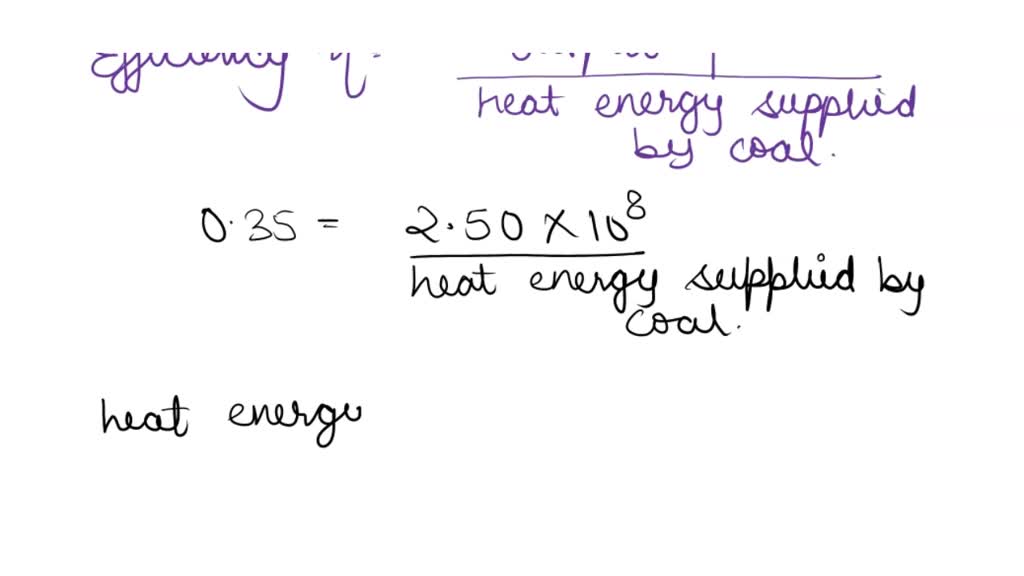 Efficiency η =
heat energy supplied
by coal.
0.35 = 2.50 × 10⁸
heat energy supplied by
coal.
heat energy